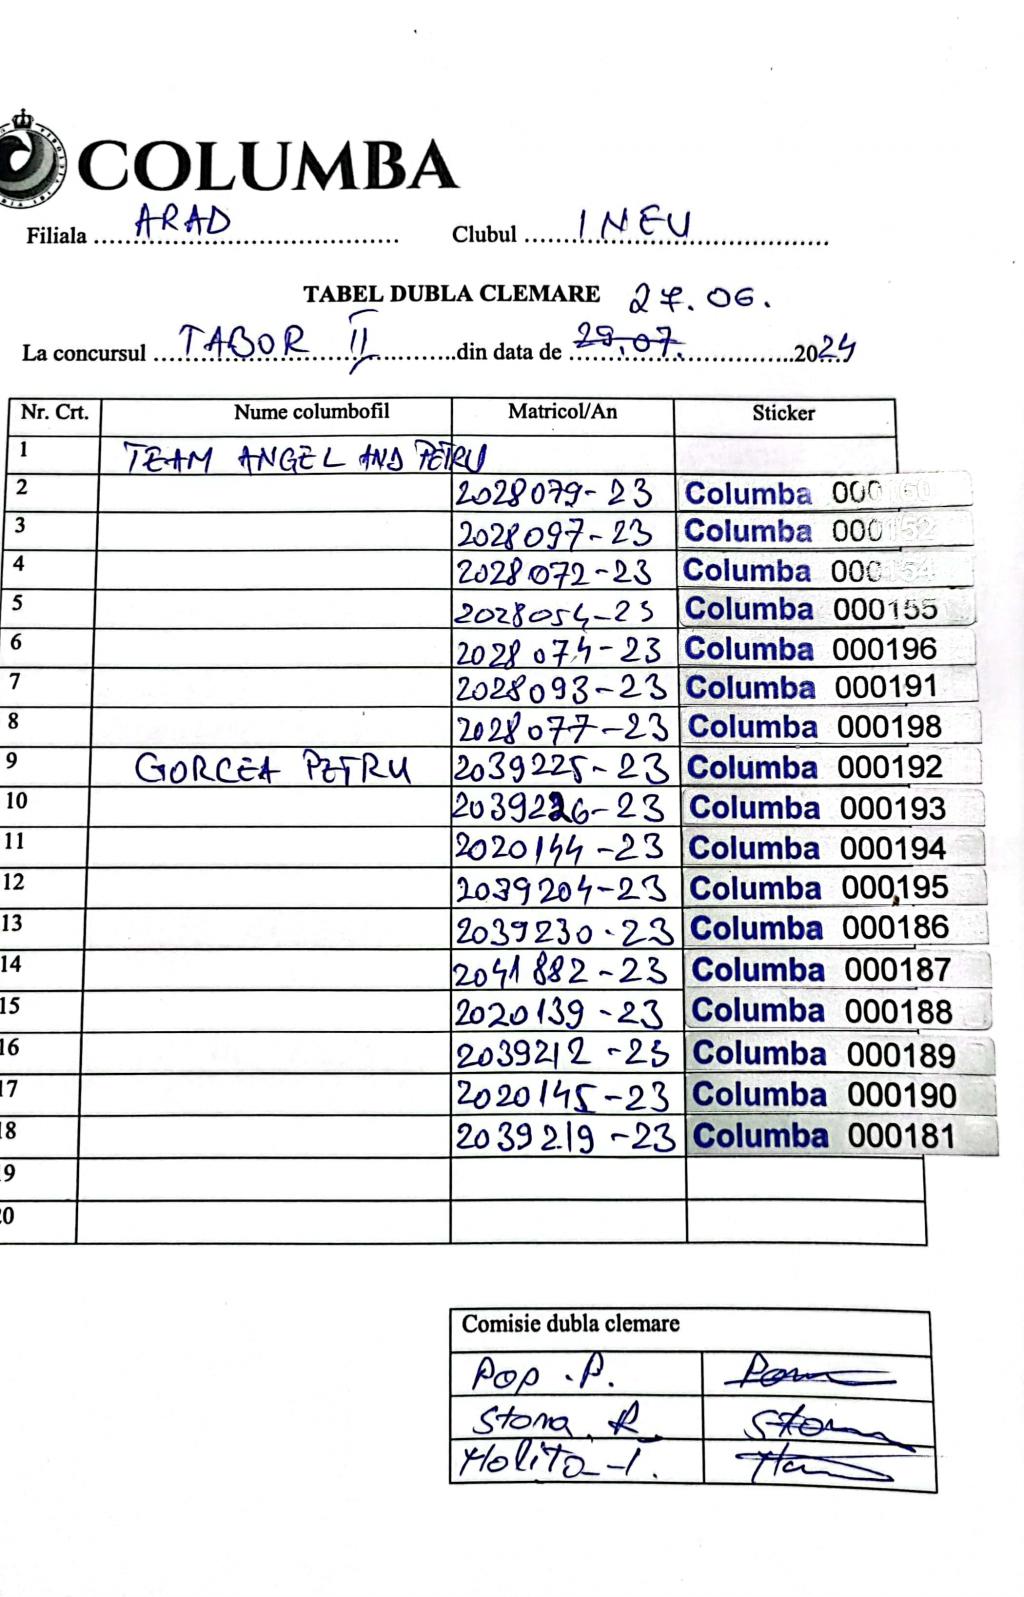 COLUMBA
Filiala ARAD Clubul INEU
TABEL DUBLA CLEMARE 27.06.
La concursul TABOR II din data de 29.07. 2024
Nr. Crt. Nume columbofil Matricol/An Sticker
1 TEAM ANGEL AND PETRU
2 2028079-23 Columba 000160
3 2028097-23 Columba 000152
4 2028072-23 Columba 000154
5 2028054-23 Columba 000155
6 2028074-23 Columba 000196
7 2028093-23 Columba 000191
8 2028077-23 Columba 000198
9 GORCEA PETRU 2039225-23 Columba 000192
10 2039226-23 Columba 000193
11 2020144-23 Columba 000194
12 2039204-23 Columba 000195
13 2039230-23 Columba 000186
14 2041882-23 Columba 000187
15 2020139-23 Columba 000188
16 2039212-23 Columba 000189
17 2020145-23 Columba 000190
18 2039219-23 Columba 000181
19
20
Comisie dubla clemare
Pop.P.
Stona R.